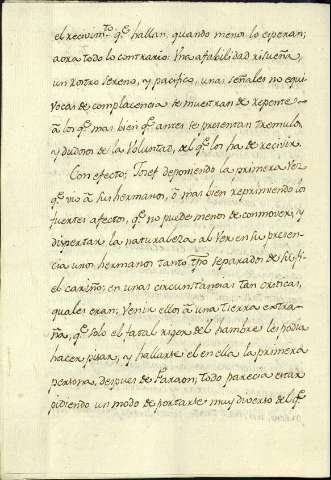 el recivim.to q.e hallan, quando menos lo esperan;
aora todo lo contrario: Una afabilidad risueña,
un rostro sereno, y pacifico, unas señales no equi
vocas de complacencia se muestran de repente
â los q.e mas bien q.e antes se presentan tremulos
y dudosos de la Voluntad, del q.e los ha de recivir.
Con efecto: Josef deponiendo la primera vez
q.e vio â sus hermanos, ô mas bien reprimiendo los
fuertes afectos, q.e no puede menos de conmover, y
dispertar la naturaleza al ver en su presen
cia unos hermanos tanto tpo separados de si, y
el cariño; en unas circunstancias tan criticas,
quales eran, venir ellos â una tierra extra
ña, q.e solo el fatal rigor del hambre les podia
hacer pisar; y hallarse el en ella la primera
persona, despues de Faraon; todo parecia estar
pidiendo un modo de portarse muy diverso del q.e